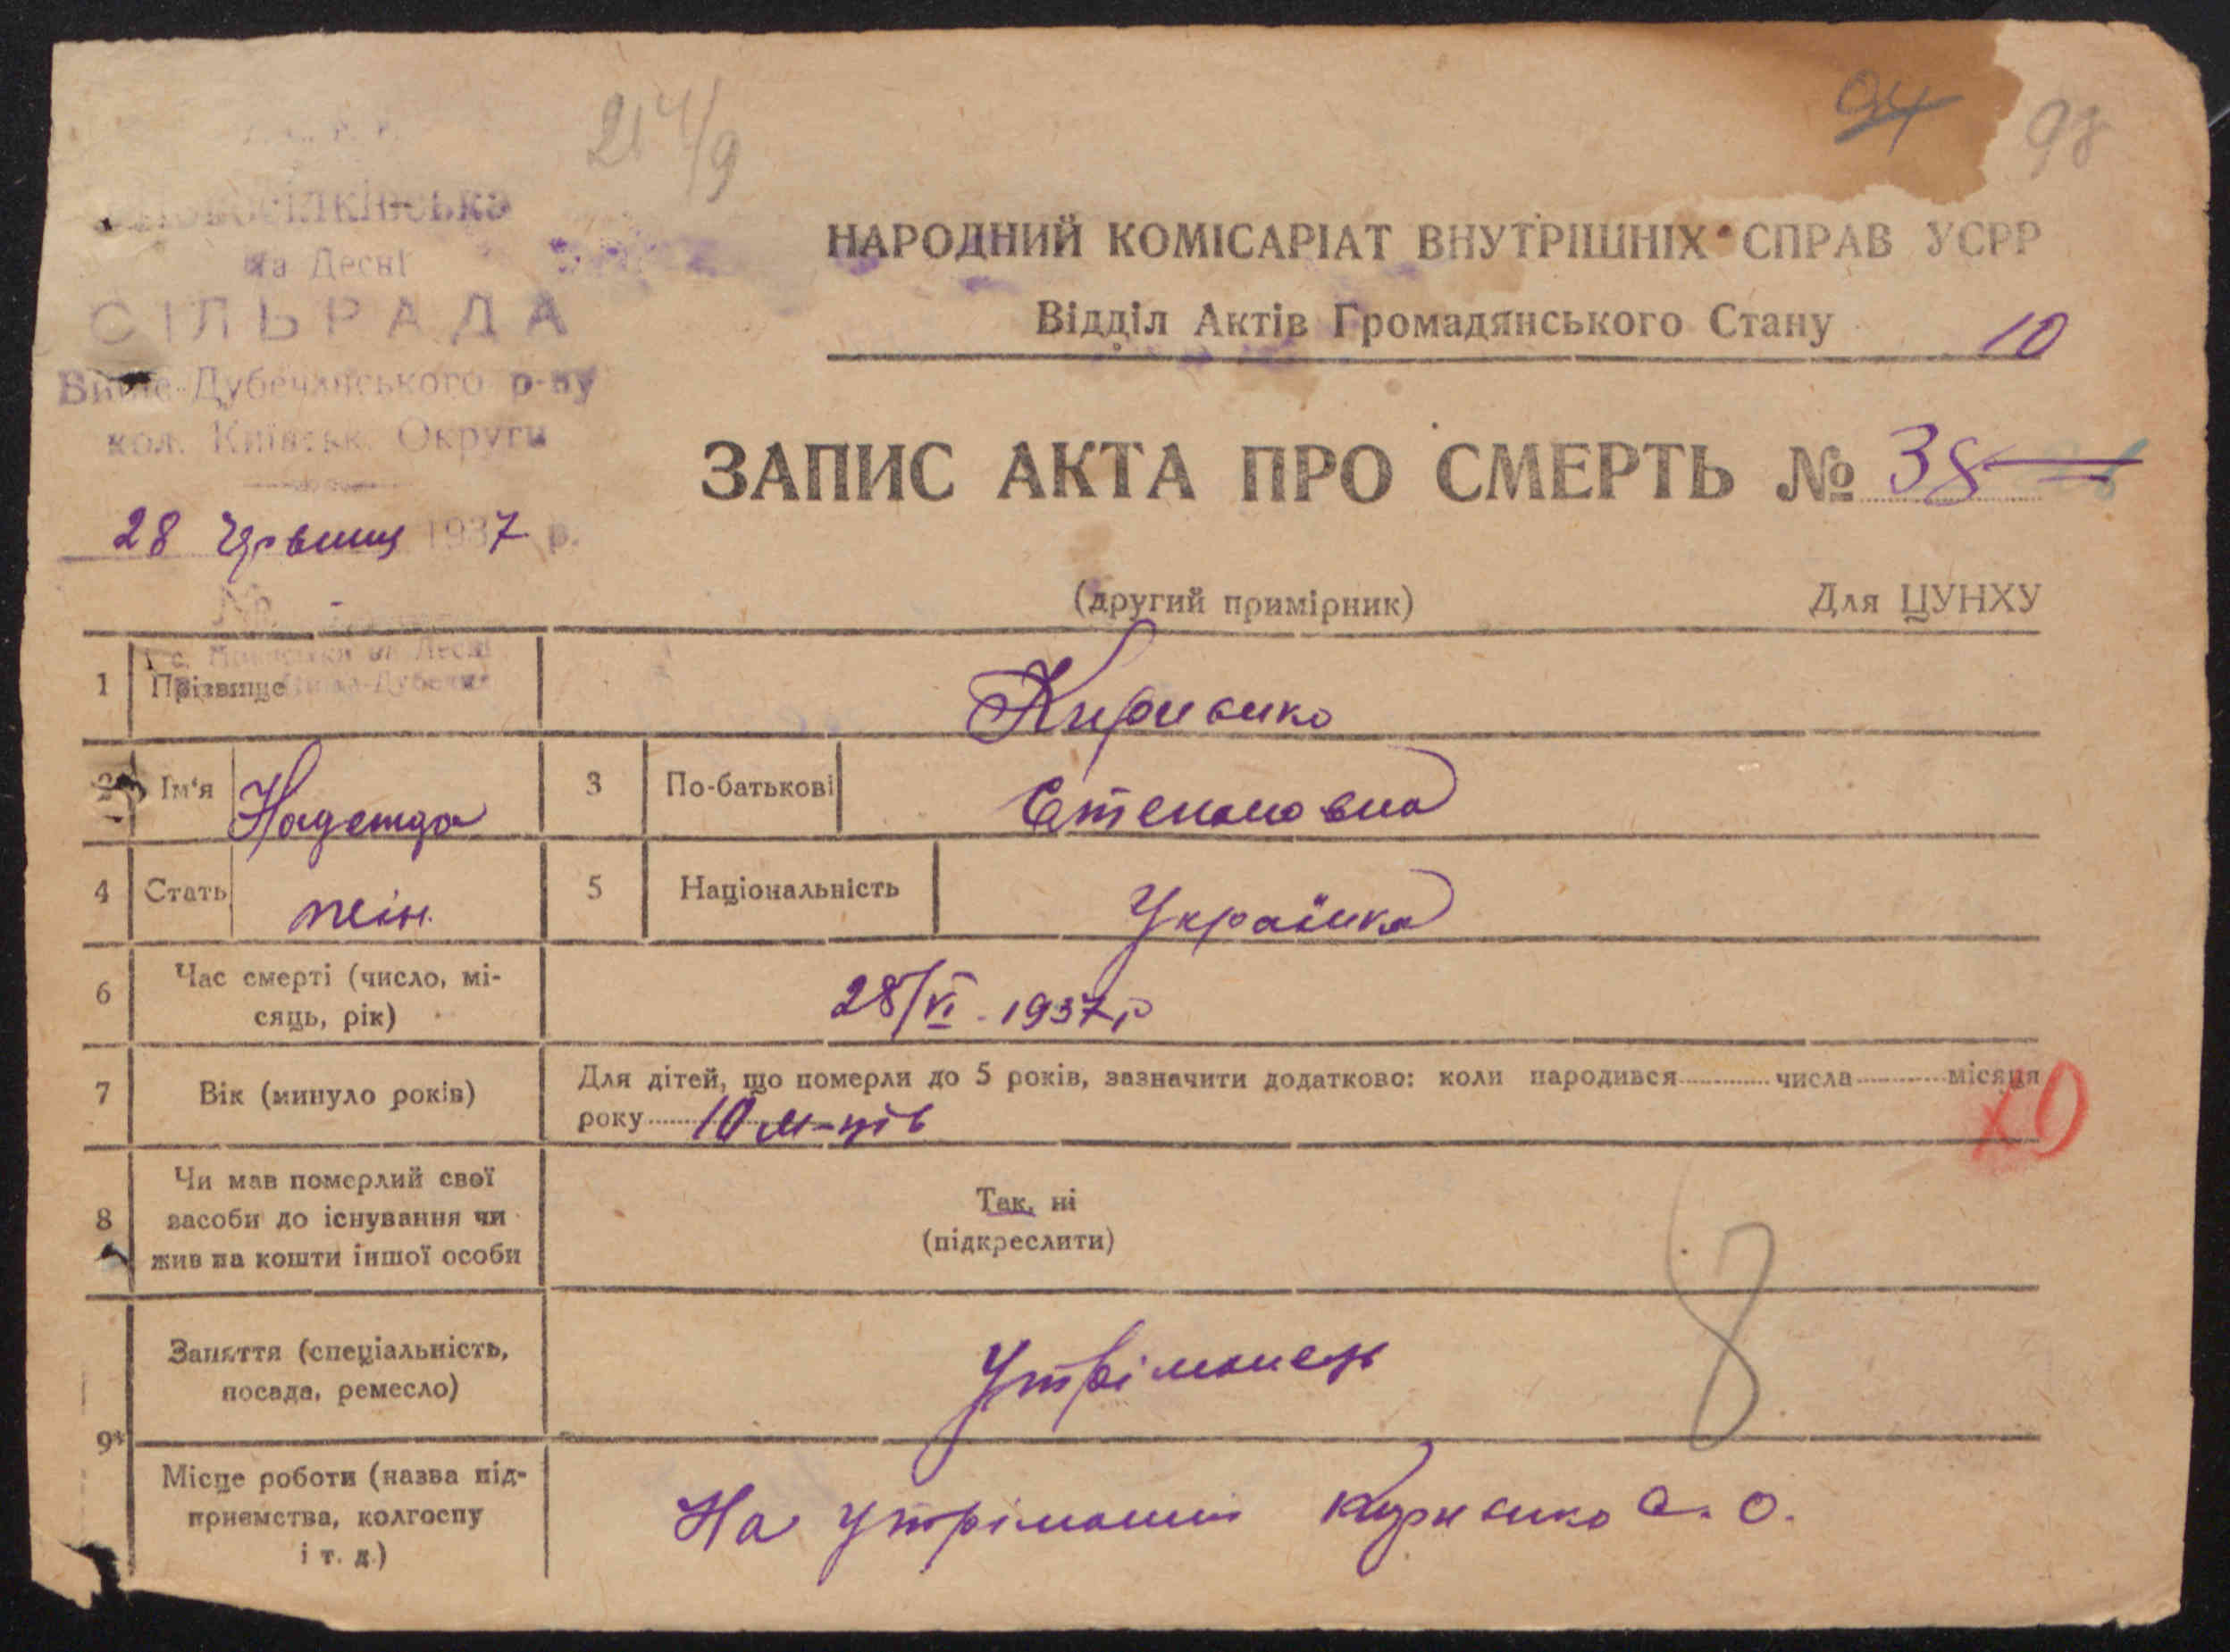 94 98
21 4/9
Новосілківська
на Десні
СІЛЬРАДА
Вище-Дубечанського р-ну
кол. Київськ. Округи
28 Червня 1937 р.
№
НАРОДНИЙ КОМІСАРІАТ ВНУТРІШНІХ СПРАВ УСРР
Відділ Актів Громадянського Стану 10
ЗАПИС АКТА ПРО СМЕРТЬ № 38
(другий примірник) Для ЦУНХУ
1 Прізвище Кириенко
2 Ім'я Надежда 3 По-батькові Степановна
4 Стать жін. 5 Національність Українка
6 Час смерті (число, мі-
сяць, рік) 28/VI - 1937 р
7 Вік (минуло років) Для дітей, що померли до 5 років, зазначити додатково: коли народився числа місяця
року 10 м-ців
10
8 Чи мав померлий свої
засоби до існування чи
жив на кошти іншої особи
Так, ні
(підкреслити)
8
9* Заняття (спеціальність,
посада, ремесло) Утріманець
Місце роботи (назва під-
приємства, колгоспу
і т. д.) На утріманні Кириенко С. О.